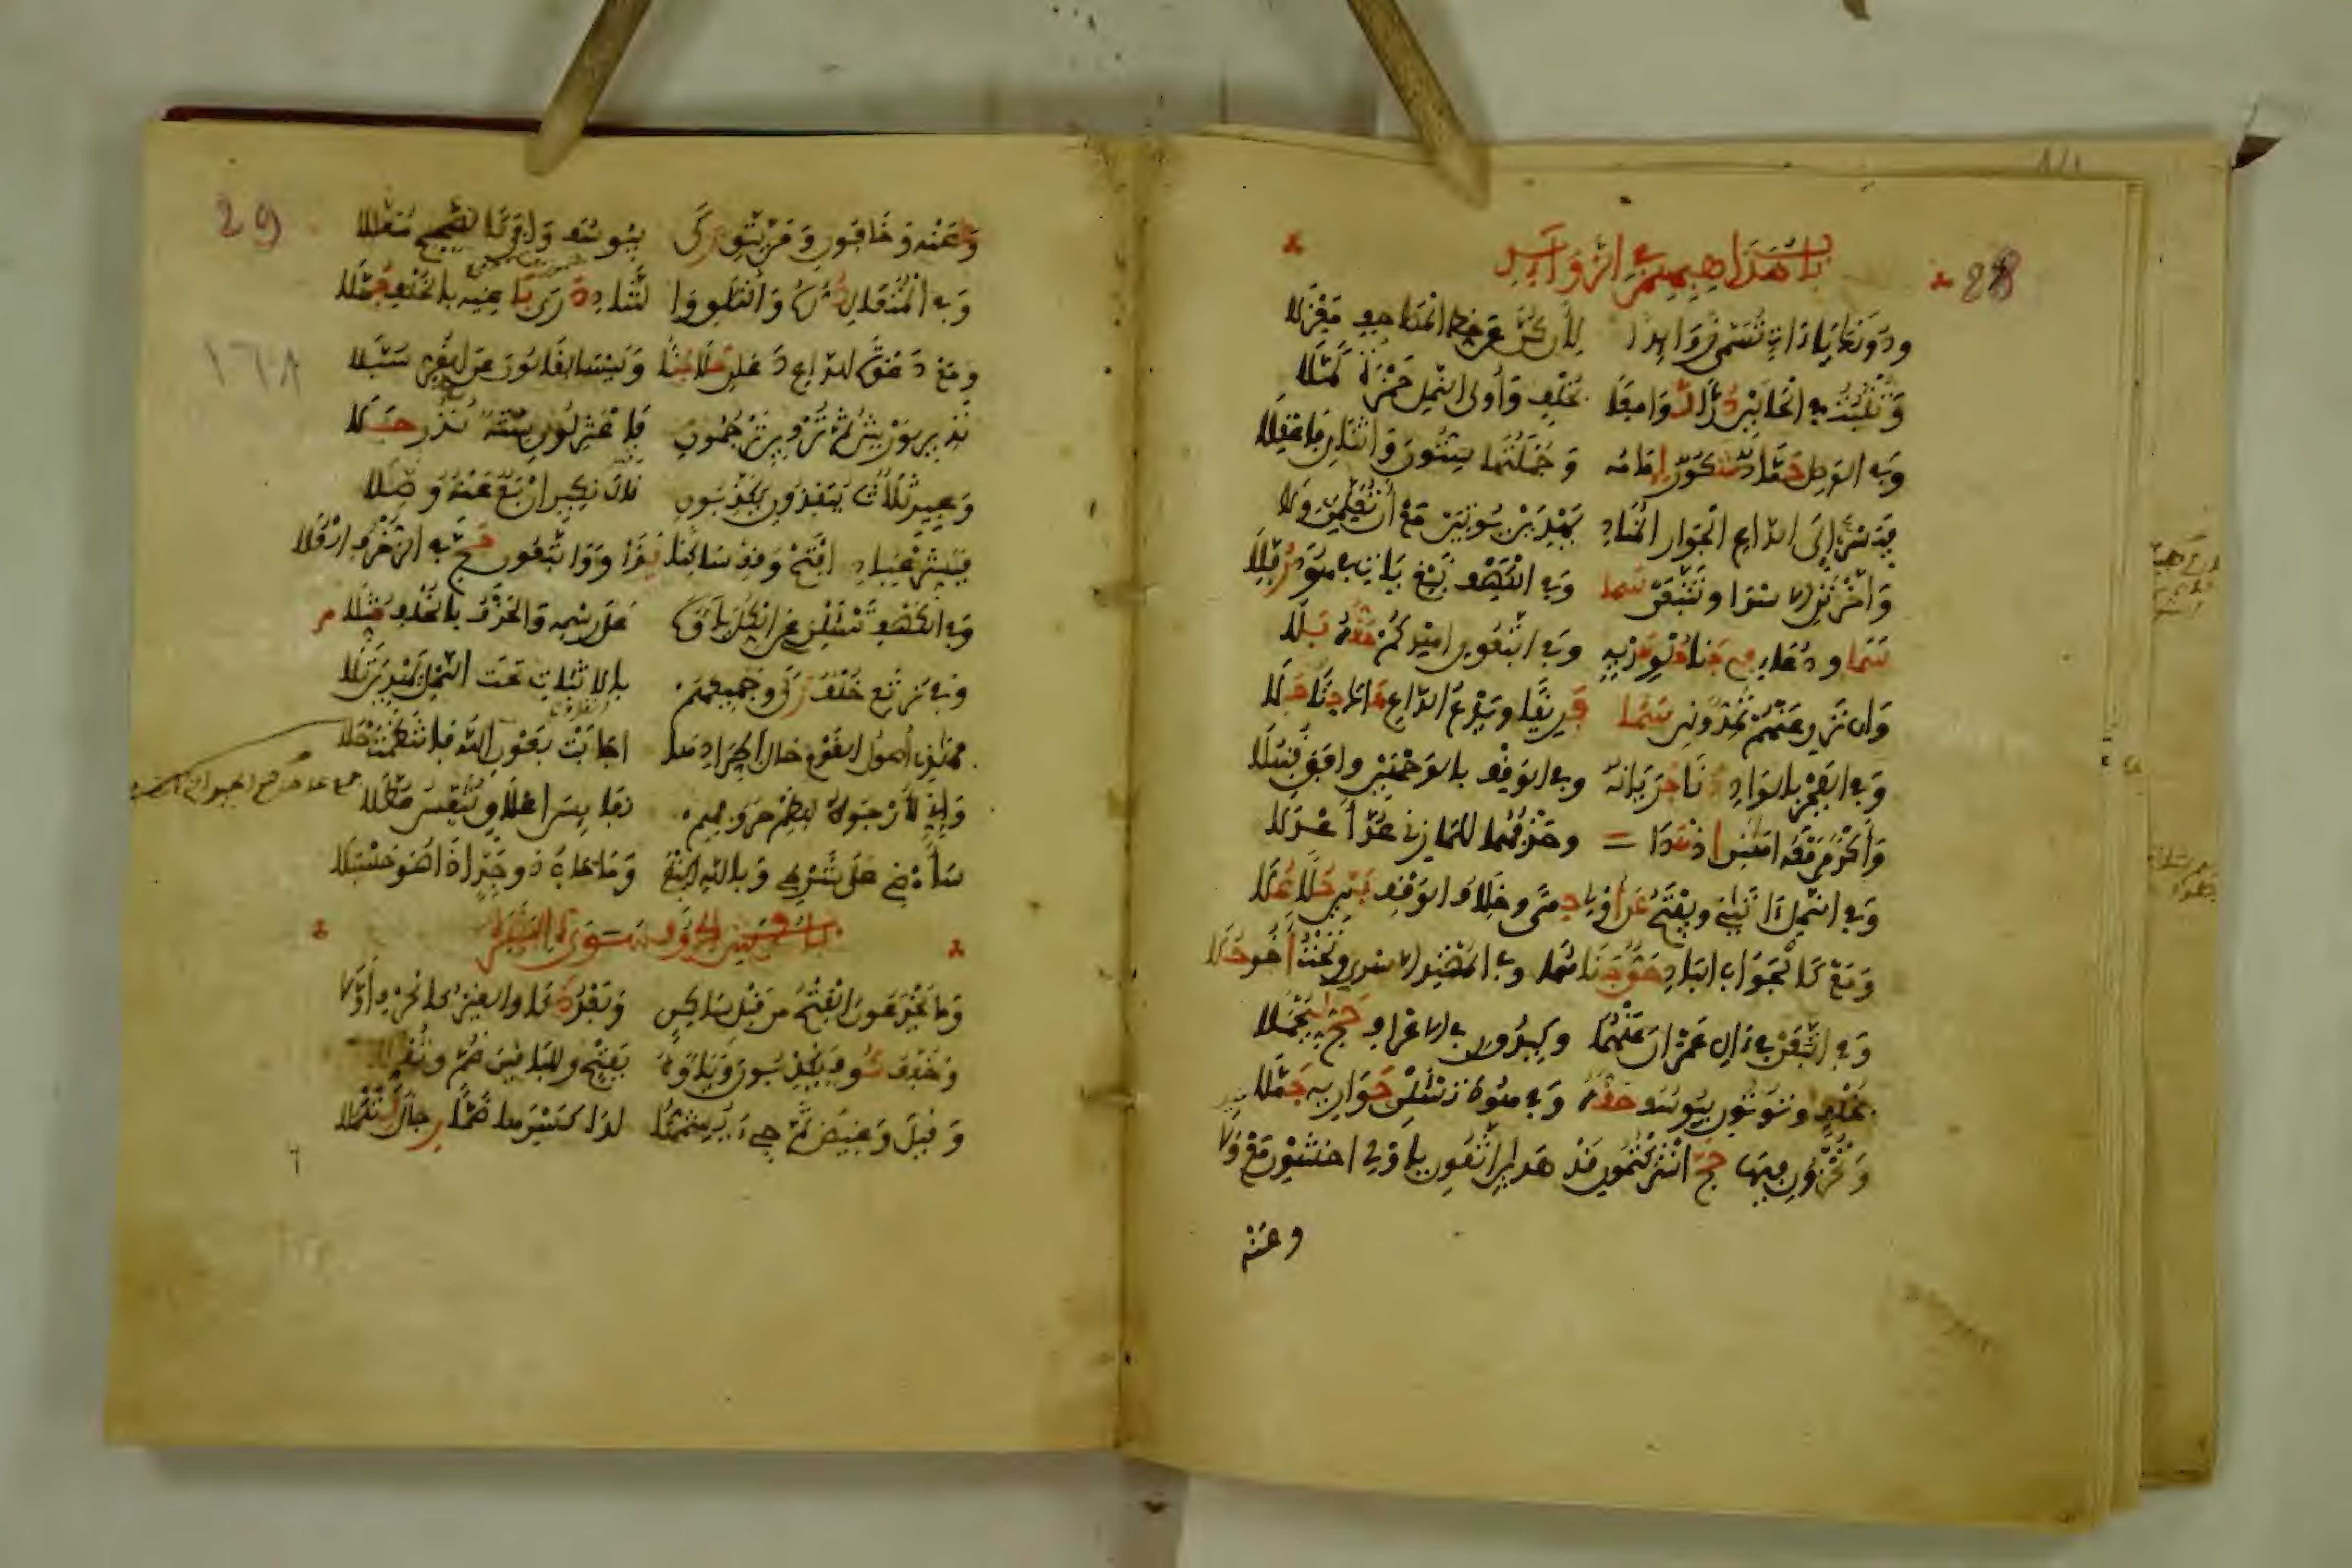 باب مذاهبهم في الزوائد
28
ودونك ياءات تسمى زوائدا لأن كن عن خط المصاحف معزلا
وتثبت في الحالين درا لوامعا بخلف وأولى النمل حمزة كملا
وفي الوصل حماد شكور إمامه وجملتها ستون واثنان فاعقلا
فيسر إلى الداع الجوار المناد يهدين يوتين مع أن تعلمن ولا
وأخرتن الاسرا وتتبعن سما وفي الكهف نبغ يات في هود رفلا
سما ودعاء في جنا حلو هديه وفي اتبعون اهدكم حقه بلا
وإن ترن عنهم تمدونن سما فريقا ويدع الداع هاك جنا حلا
وفي الفجر بالواد دنا جريانه وفي الوقف بالوجهين وافق قنبلا
وأكرمن معه اهانن اذ هدا وحذفهما للمازني عد أعدلا
وفي النمل آتاني ويفتح عن أولي حمى وخلاف الوقف بين حلا علا
ومع كالجواب الباد حق جناهما وفي المهتد الاسرا وتحت أخو حلا
وفي اتبعن في آل عمران عنهما وكيدون في الاعراف حج ليحملا
بخلف وتوتون بيوسف حقه وفي هود تسئلن حواريه جملا
وتخزون فيها حج اشركتمون قد هدان اتقون يا أولي اخشون مع ولا
وعنه
29
وعنه وخافون ومن يتق زكى بيوسف وافى كالصحيح معللا
وفي المتعال دره والتلاق والتناد درى باغيه بالخلف جهلا
ومع دعوة الداع دعان حلا جنا وليسا لقالون عن الغر سبلا
١٦٨
نذير لورش ثم تردين ترجمون فاعتزلون ستة نذر جلا
وعيد ثلاث ينقذون يكذبون قال نكير اربع عنه وصلا
فبشر عباد افتح وقف ساكنا يدا وواتبعون حج في الزخرف العلا
وفي الكهف تسئلن عن الكل ياؤه على رسمه والحذف بالخلف مثلا
وفي نرتع خلف زكى وجميعهم بالاثبات تحت النمل يهدين تلا
فهذي أصول القوم حال اطرادها اجابت بعون الله فانتظمت حلا
وإني لأرجوه لنظم حروفهم نفايس اعلاق تنفس عطلا
سأمضي على شرطي وبالله اكتفي وما خاب ذو جد إذا هو حسبلا
باب فرش الحروف سورة البقرة
وما يخدعون الفتح من قبل ساكن وبعد ذكا والغير كالحرف أولا
وخفف كوف يكذبون وياؤه بفتح وللباقين ضم وثقلا
وقيل وغيض ثم جيء يشمها لدا كسرها ضما رجال لتكملا